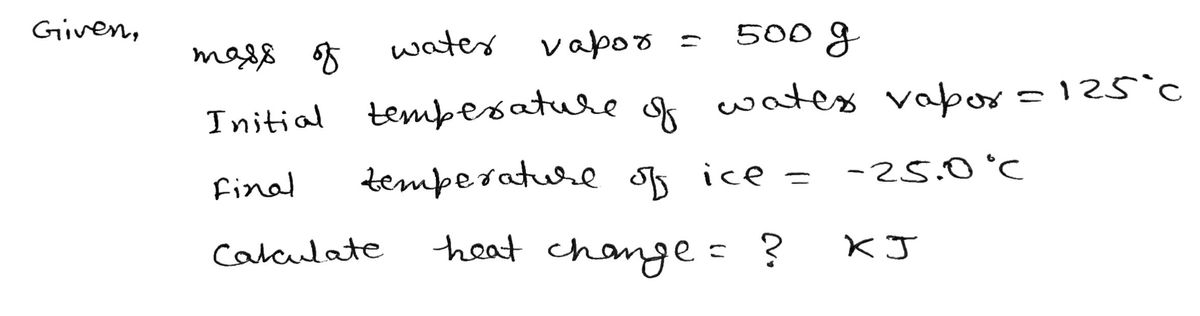 Given,
mass of water vapor = 500 g
Initial temperature of water vapor = 125°C
Final temperature of ice = -25.0 °C
Calculate heat change = ? KJ